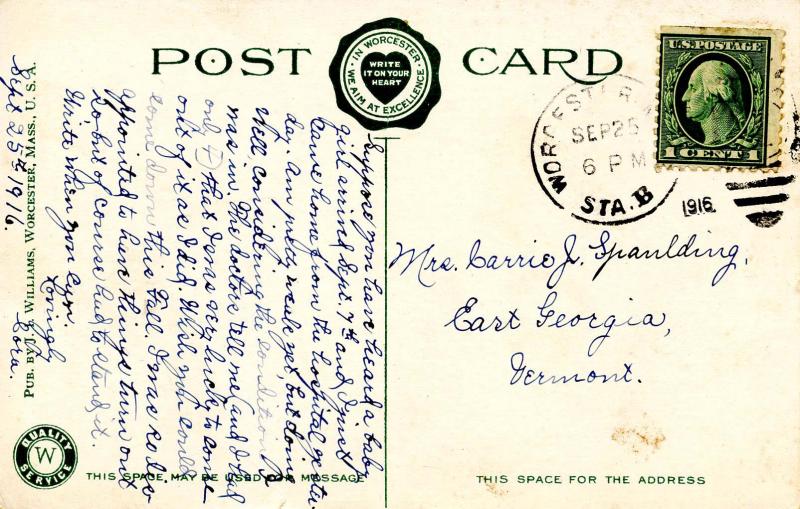 POST CARD
IN WORCESTER, WE AIM AT EXCELLENCE
WRITE IT ON YOUR HEART
U.S. POSTAGE
1 CENT 1
WORCESTER
SEP 25
6 PM
STA. B
1916
Mrs. Carrie J. Spaulding,
East Georgia,
Vermont.
Suppose you have heard a baby
girl arrived Sept. 7th and I just
came home from the hospital yester-
day. Am pretty weak yet, but done
well considering the condition I
was in. The doctors tell me (and I had
only 4) that I was very lucky to come
out of it as I did. Wish you could
come down this Fall. I was so dis
appointed to have things turn out
so but of course had to stand it.
Write when you can.
Lovingly
Cora.
Sept 25th 1916.
PUB. BY J. I. WILLIAMS, WORCESTER, MASS., U. S. A.
QUALITY
W
SERVICE
THIS SPACE MAY BE USED FOR MESSAGE
THIS SPACE FOR THE ADDRESS